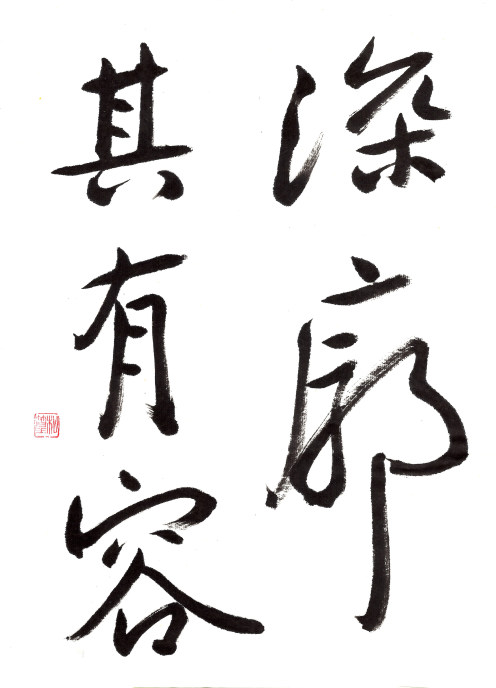 深廓
其有容